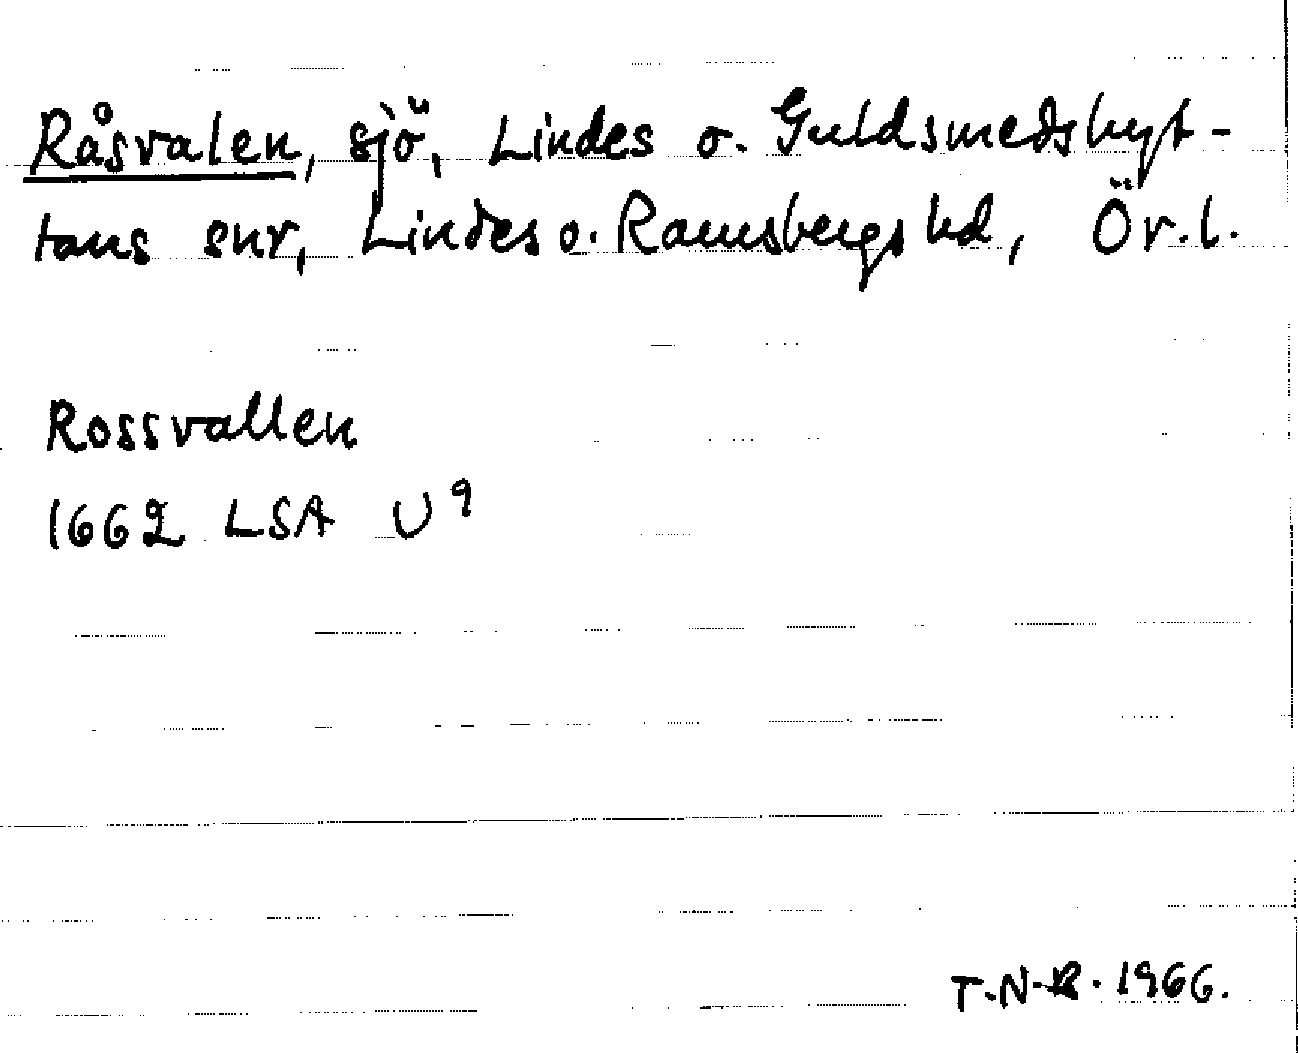 Råsvalen, sjö, Lindes o. Guldsmedshyt-
tans snr, Lindes o. Ramsbergs hd, Ör.l.
Rossvallen
1662 LSA U⁹
T.N-R. 1966.